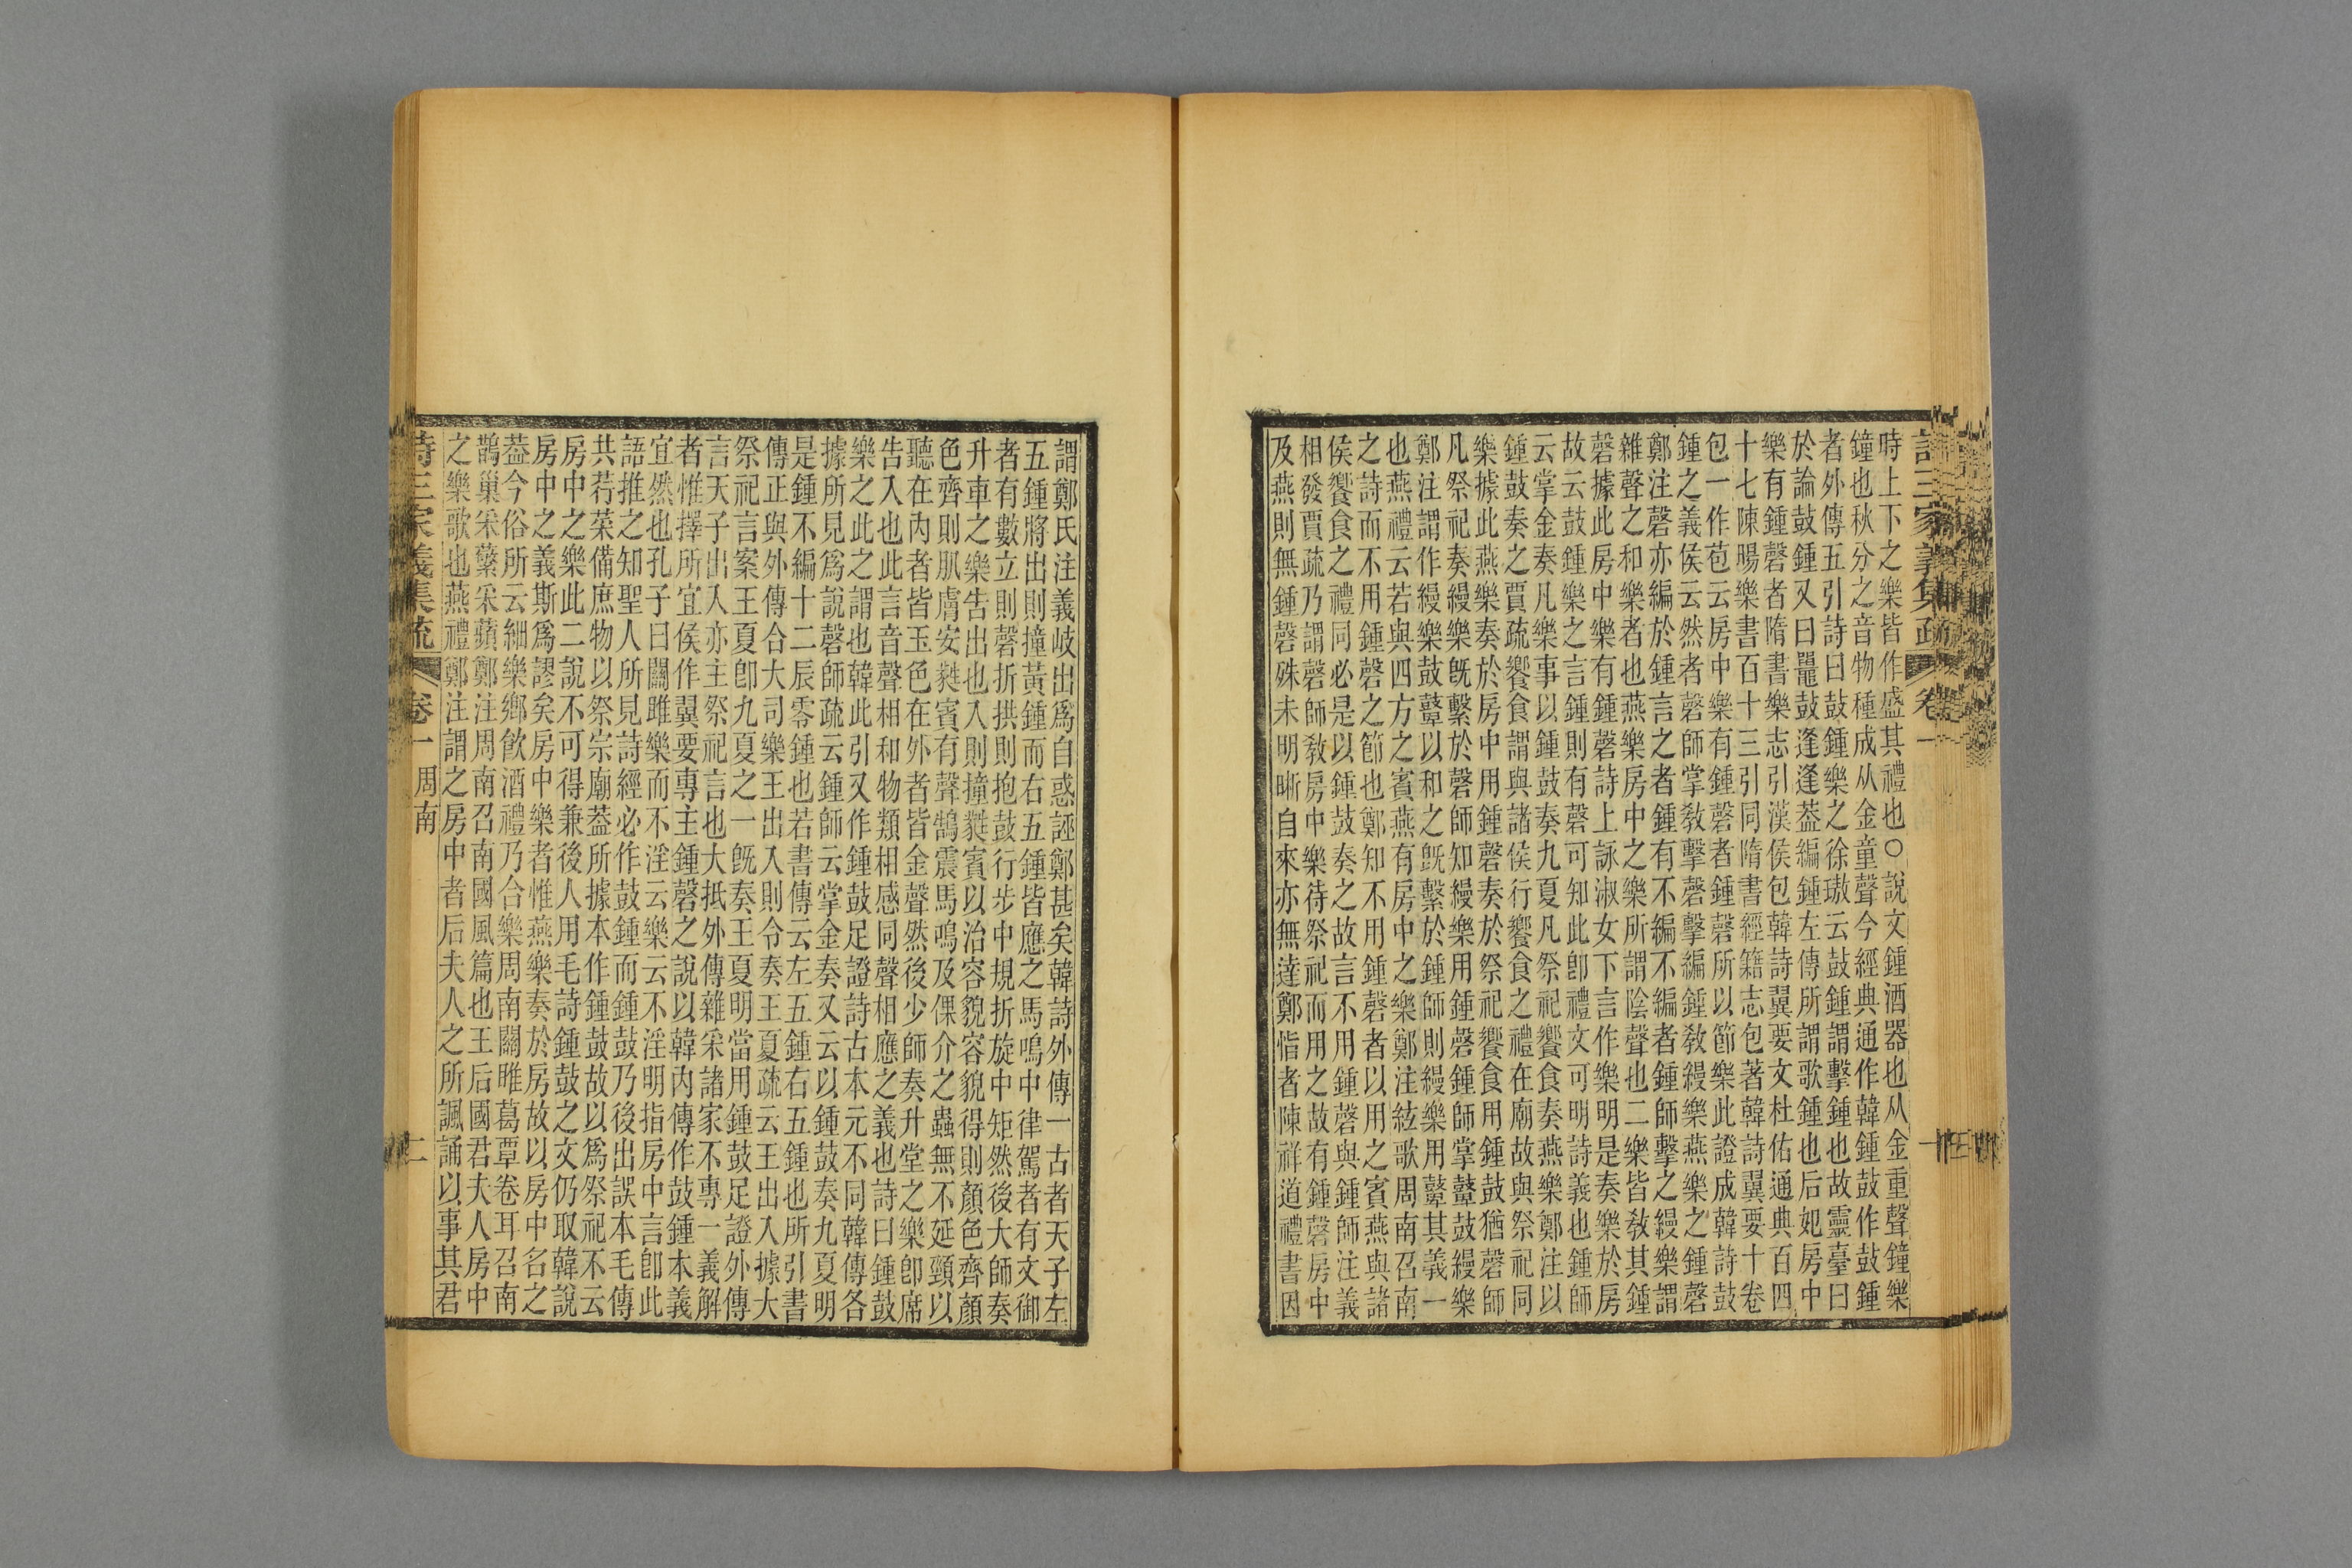 詩三家義集疏 卷一
時上下之樂皆作盛其禮也○說文鍾酒器也从金重聲鐘樂
鐘也秋分之音物種成从金童聲今經典通作韓鍾鼓作鼓鍾
者外傳五引詩曰鼓鍾樂之徐璈云鼓鍾謂擊鍾也故靈臺曰
於論鼓鍾又曰鼉鼓逢逢葢編鍾左傳所謂歌鍾也后妃房中
樂有鍾磬者隋書樂志引漢侯包韓詩翼要文杜佑通典百四
十七陳暘樂書百十三引同隋書經籍志包著韓詩翼要十卷
包一作苞云房中樂有鍾磬者鍾磬所以節樂此證成韓詩鼓
鍾之義侯云然者磬師掌教擊磬擊編鍾教縵樂燕樂之鍾磬
鄭注磬亦編於鍾言之者鍾有不編不編者鍾師擊之縵樂謂
雜聲之和樂者也燕樂房中之樂所謂陰聲也二樂皆教其鍾
磬據此房中樂有鍾磬詩上詠淑女下言作樂明是奏樂於房
故云鼓鍾樂之言鍾則有磬可知此卽禮文可明詩義也鍾師
云掌金奏凡樂事以鍾鼓奏九夏凡祭祀饗食奏燕樂鄭注以
鍾鼓奏之賈疏饗食謂與諸侯行饗食之禮在廟故與祭祀同
樂據此燕樂奏於房中用鍾磬奏於祭祀饗食用鍾鼓猶磬師
凡祭祀奏縵樂旣繫於磬師知縵樂用鍾磬鍾師掌鼙鼓縵樂
鄭注謂作縵樂鼓鼙以和之旣繫於鍾師則縵樂用鼙其義一
也燕禮云若與四方之賓燕有房中之樂鄭注絃歌周南召南
之詩而不用鍾磬之節也鄭知不用鍾磬者以用之賓燕與諸
侯饗食之禮同必是以鍾鼓奏之故言不用鍾磬與鍾師注義
相發賈疏乃謂磬師教房中樂待祭祀而用之故有鍾磬房中
及燕則無鍾磬殊未明晰自來亦無達鄭恉者陳祥道禮書因
謂鄭氏注義岐出爲自惑誣鄭甚矣韓詩外傳一古者天子左
五鍾將出則撞黃鍾而右五鍾皆應之馬鳴中律駕者有文御
者有數立則磬折拱則抱鼓行步中規折旋中矩然後大師奏
升車之樂告出也入則撞蕤賓以治容貌容貌得則顏色齊顏
色齊則肌膚安蕤賓有聲鵠震馬鳴及倮介之蟲無不延頸以
聽在內者皆玉色在外者皆金聲然後少師奏升堂之樂卽席
告入也此言音聲相和物類相感同聲相應之義也詩曰鍾鼓
樂之此之謂也韓此引又作鍾鼓足證詩古本元不同韓傳各
據所見爲說磬師疏云鍾師云掌金奏又云以鍾鼓奏九夏明
是鍾不編十二辰零鍾也若書傳云左五鍾右五鍾也所引書
傳正與外傳合大司樂王出入則令奏王夏疏云王出入據大
祭祀言案王夏卽九夏之一旣奏王夏明當用鍾鼓足證外傳
言天子出入亦主祭祀言也大抵外傳雜采諸家不專一義解
者惟擇所宜侯作翼要專主鍾磬之說以韓內傳作鼓鍾本義
宜然也孔子曰關雎樂而不淫云樂云不淫明指房中言卽此
語推之知聖人所見詩經必作鼓鍾而鍾鼓乃後出誤本毛傳
共荇菜備庶物以祭宗廟葢所據本作鍾鼓故以爲祭祀不云
房中之樂此二說不可得兼後人用毛詩鍾鼓之文仍取韓說
房中之義斯爲謬矣房中樂者惟燕樂奏於房故以房中名之
葢今俗所云細樂鄉飲酒禮乃合樂周南關雎葛覃卷耳召南
鵲巢采蘩采蘋鄭注周南召南國風篇也王后國君夫人房中
之樂歌也燕禮鄭注謂之房中者后夫人之所諷誦以事其君
詩三家義集疏 卷一 周南 二